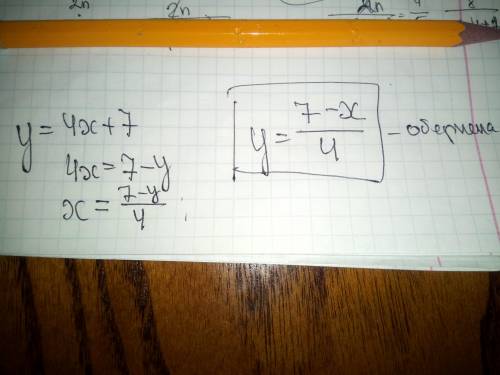 y = 4x + 7
4x = 7 - y
x = \frac{7-y}{4} ;
y = \frac{7-x}{4} - обернена